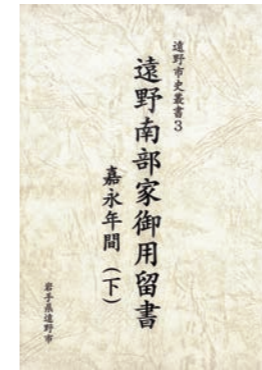 遠野市史叢書3
遠野南部家御用留書
嘉永年間(下)
岩手県遠野市